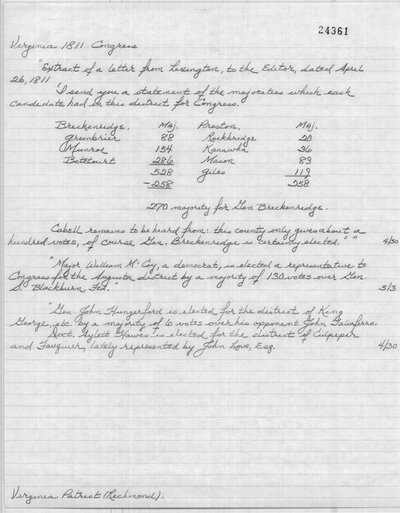 24361
Virginia 1811 Congress
"Extract of a letter from Lexington, to the Editor, dated April
26, 1811
'I send you a statement of the majorities which each
candidate had in this district for Congress.
Breckenridge. Maj. Preston. Maj.
Greenbrier 88 Rockbridge 20
Munroe 154 Kanawha 36
Botetourt 286 Mason 83
528 Giles 119
-258 258
270 majority for Gen Breckenridge.
Cabell remains to be heard from: this county only gives about a
hundred votes, of course Gen. Breckenridge is certainly elected.'" 4/30
"Major William M'Coy, a democrat, is elected a representative to
Congress for the Augusta district by a majority of 130 votes over Gen.
S. Blackburn, Fed." 5/3
"Gen John Hungerford is elected for the district of King
George, etc. by a majority of 6 votes over his opponent John Taliaferro.
Doct. Aylett Hawes is elected for the district of Culpeper
and Fauquier, lately represented by John Love, Esq. 4/30
Virginia Patriot (Richmond).